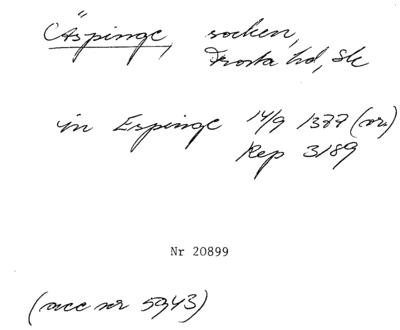 Äspinge, socken,
Frosta hd, Sk
in Espinge 14/9 1377 (or.)
Rep 3189
Nr 20899
(acc nr 5943)